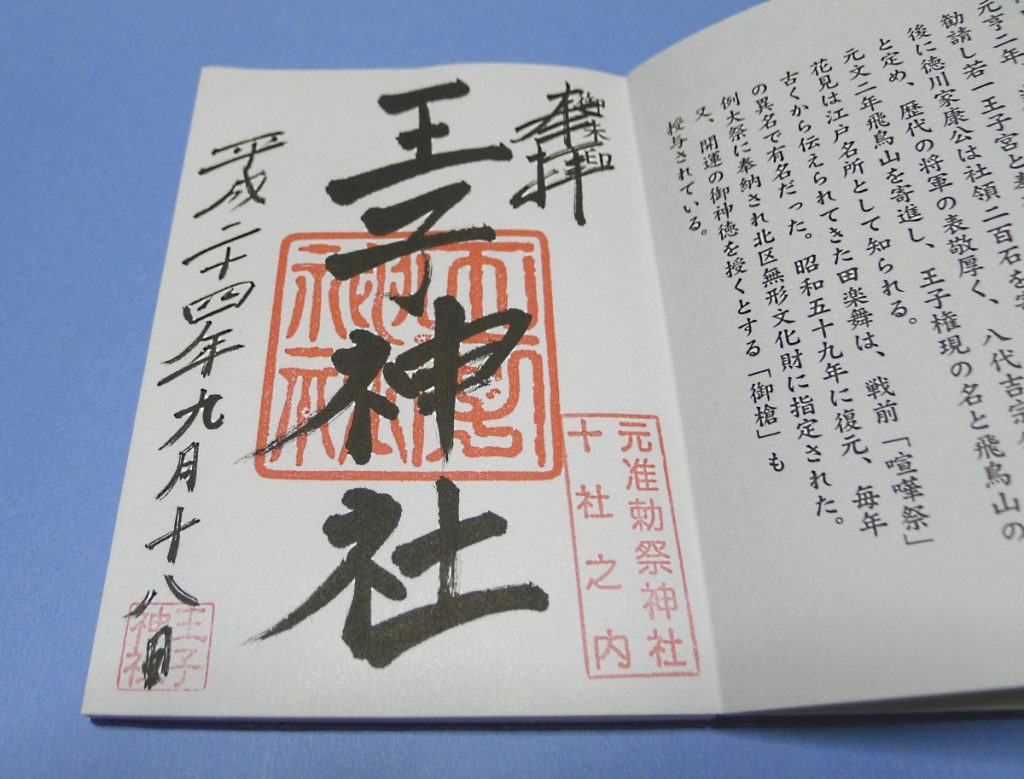 元亨二年
勧請し若一王子宮と奉
後に徳川家康公は社領二百石を寄
と定め、歴代の将軍の表敬厚く、八代吉宗
元文二年飛鳥山を寄進し、王子権現の名と飛鳥山の
花見は江戸名所として知られる。
古くから伝えられてきた田楽舞は、戦前「喧嘩祭」
の異名で有名だった。昭和五十九年に復元、毎年
例大祭に奉納され北区無形文化財に指定された。
又、開運の御神徳を授くとする「御槍」も
授与されている。
御朱印
奉拝
王子神社
元准勅祭神社
十社之内
平成二十四年九月十八日
王子
神社